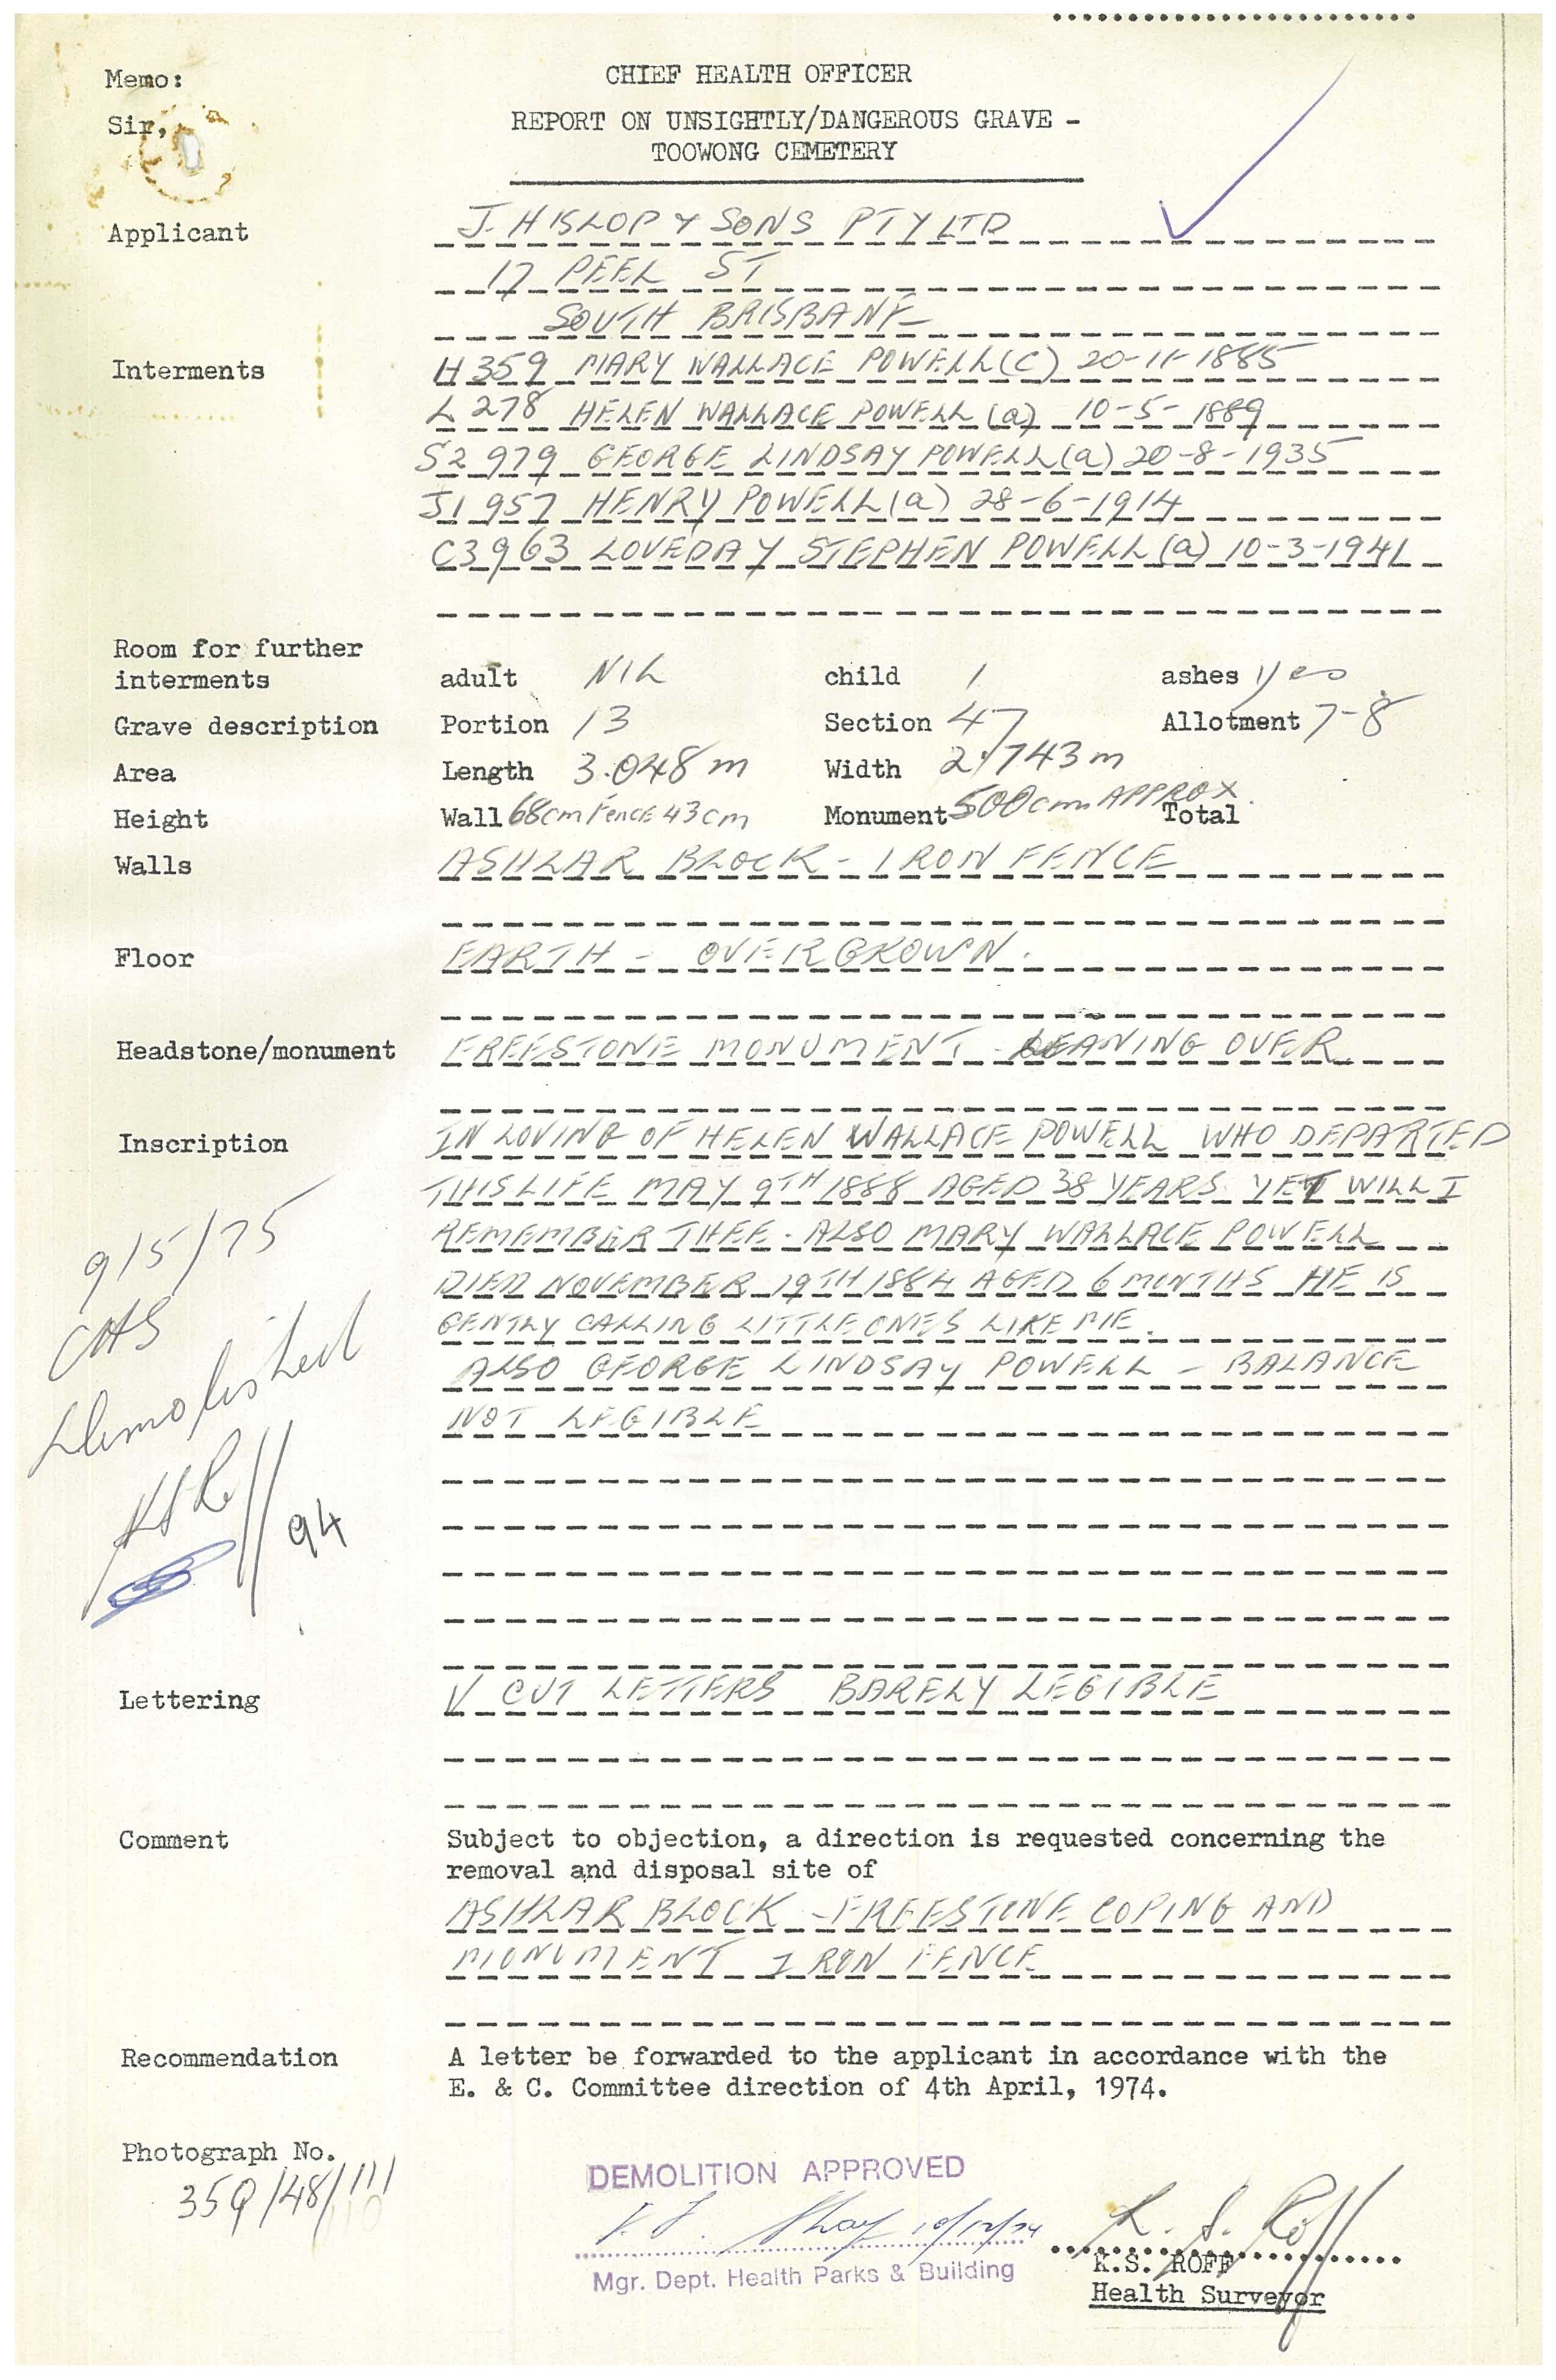 Memo:
CHIEF HEALTH OFFICER
Sir,
REPORT ON UNSIGHTLY/DANGEROUS GRAVE -
TOOWONG CEMETERY
Applicant J. HISLOP & SONS PTY LTD
17 PEEL ST
SOUTH BRISBANE
Interments H359 MARY WALLACE POWELL (C) 20-11-1885
L278 HELEN WALLACE POWELL (a) 10-5-1889
S2 979 GEORGE LINDSAY POWELL (a) 20-8-1935
J1 957 HENRY POWELL (a) 28-6-1914
C3963 LOVEDAY STEPHEN POWELL (a) 10-3-1941
Room for further
interments adult NIL child 1 ashes yes
Grave description Portion 13 Section 47 Allotment 7-8
Area Length 3.048m Width 2.743m
Height Wall 68cm FENCE 43cm Monument 500cm APPROX. Total
Walls ASHLAR BLOCK - IRON FENCE
Floor EARTH - OVERGROWN.
Headstone/monument FREESTONE MONUMENT - LEANING OVER
Inscription IN LOVING OF HELEN WALLACE POWELL WHO DEPARTED
THIS LIFE MAY 9TH 1888 AGED 38 YEARS. YET WILL I
REMEMBER THEE. ALSO MARY WALLACE POWELL
DIED NOVEMBER 19TH 1884 AGED 6 MONTHS HE IS
GENTLY CALLING LITTLE ONES LIKE ME.
ALSO GEORGE LINDSAY POWELL - BALANCE
NOT LEGIBLE
9/5/75
CAS
Demolished
KSRoff
94
Lettering V CUT LETTERS BARELY LEGIBLE
Comment Subject to objection, a direction is requested concerning the
removal and disposal site of
ASHLAR BLOCK - FREESTONE COPING AND
MONUMENT IRON FENCE
Recommendation A letter be forwarded to the applicant in accordance with the
E. & C. Committee direction of 4th April, 1974.
Photograph No.
35Q/48/111
DEMOLITION APPROVED
10/12/74
K. S. Roff
K.S. ROFF
Mgr. Dept. Health Parks & Building
Health Surveyor